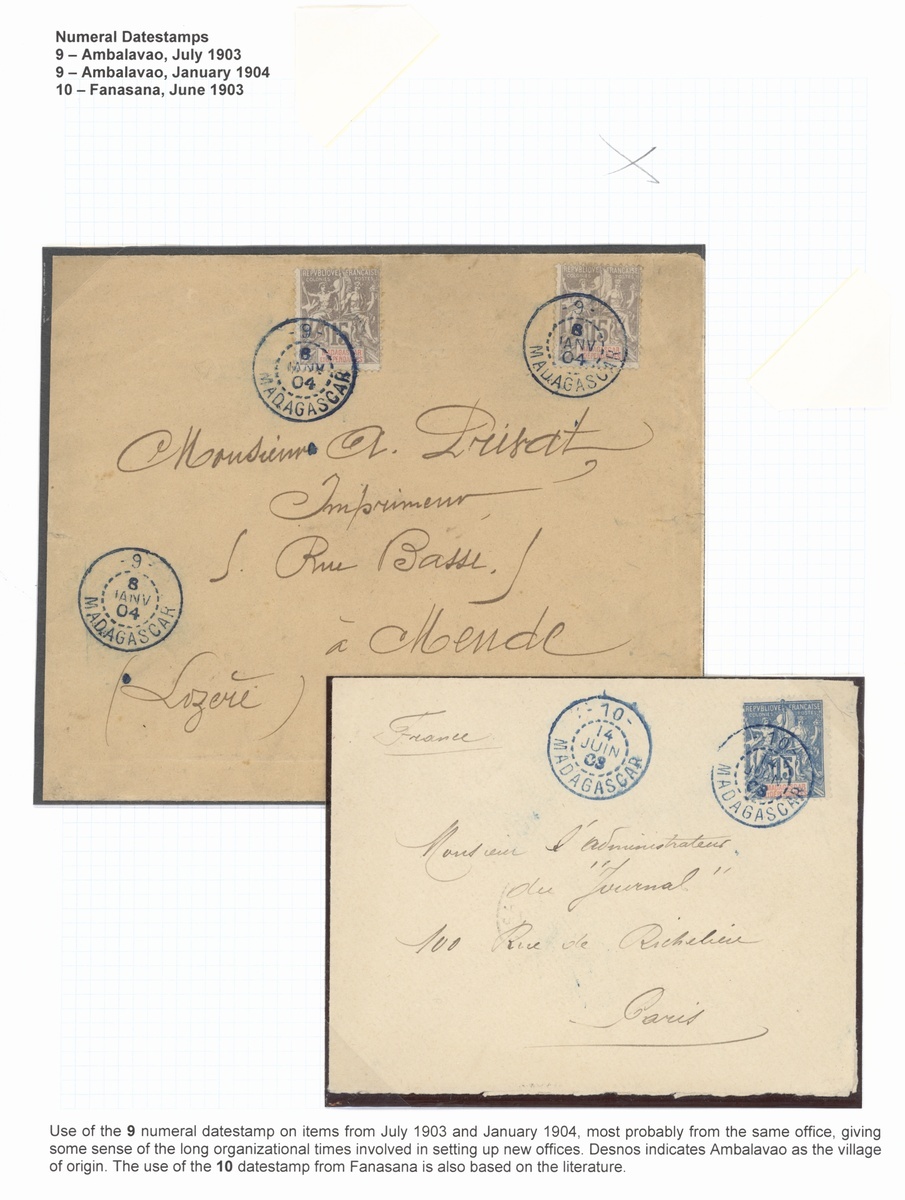 Numeral Datestamps
9 – Ambalavao, July 1903
9 – Ambalavao, January 1904
10 – Fanasana, June 1903
REPUBLIQUE FRANÇAISE
COLONIES POSTES
15
REPUBLIQUE FRANÇAISE
COLONIES POSTES
15
-9-
8
JANV
04
MADAGASCAR
-9-
8
JANV
04
MADAGASCAR
Monsieur A. Privat
Imprimeur
5. Rue Basse. 5
à Mende
(Lozère)
-9-
8
JANV
04
MADAGASCAR
France
-10-
14
JUIN
03
MADAGASCAR
REPUBLIQUE FRANÇAISE
COLONIES POSTES
15
-10-
JUIN
03
MADAGASCAR
Monsieur l'administrateur
du "Journal"
100 Rue de Richelieu
Paris
Use of the 9 numeral datestamp on items from July 1903 and January 1904, most probably from the same office, giving
some sense of the long organizational times involved in setting up new offices. Desnos indicates Ambalavao as the village
of origin. The use of the 10 datestamp from Fanasana is also based on the literature.